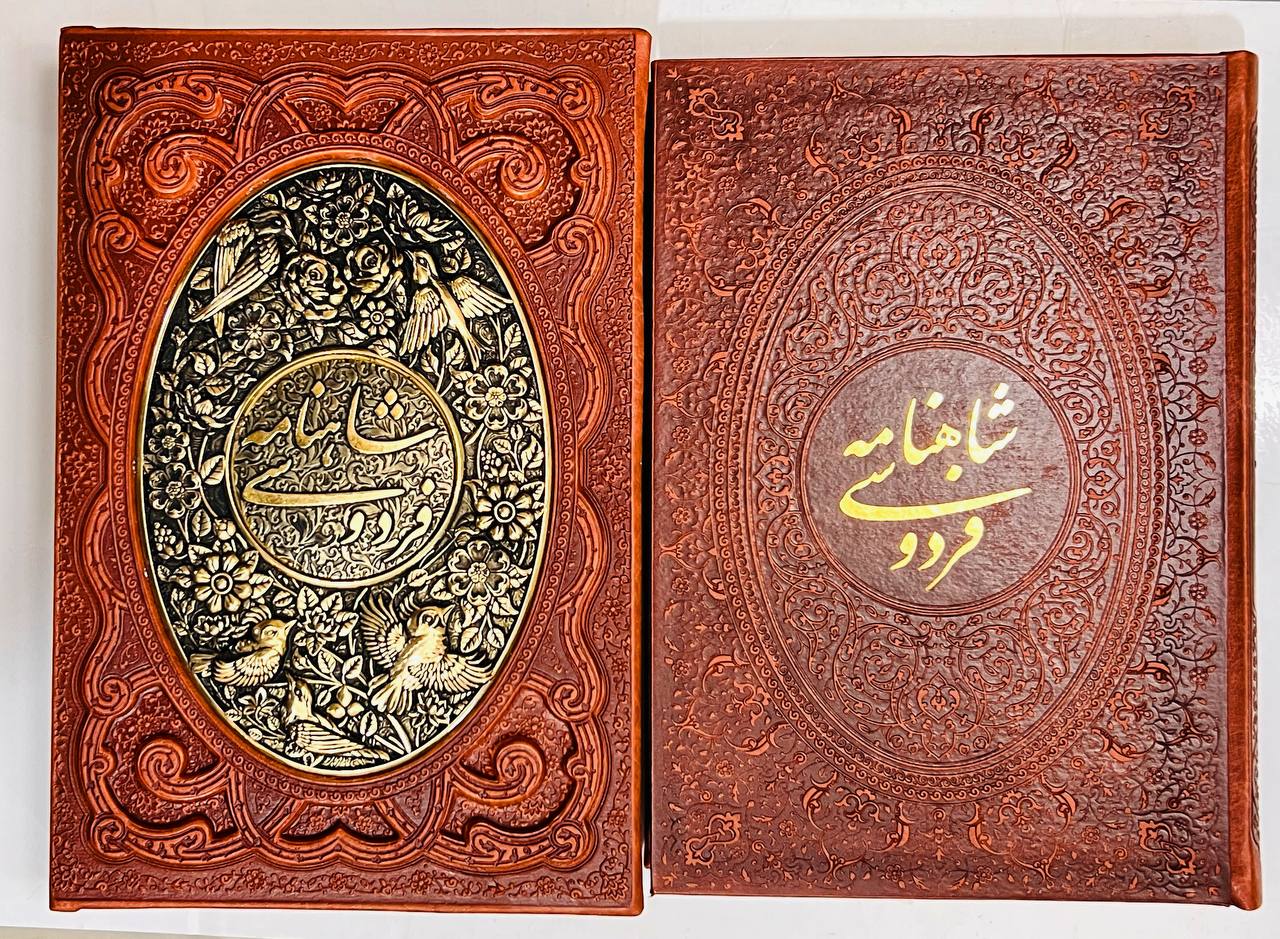 شاهنامه
فردوسی
شاهنامه
فردوسی